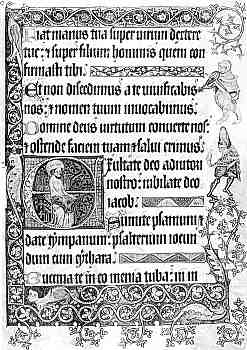 iat manus tua super uirum dextere
tue: & super filium hominis quem con
firmasti tibi.
Et non discedimus a te uiuificabis
nos: & nomen tuum inuocabimus.
Domine deus uirtutum conuerte nos:
& ostende faciem tuam & salui erimus.
Exultate deo adiutori
nostro: iubilate deo
iacob.
Sumite psalmum &
date tympanum: psalterium iocun
dum cum cythara.
Buccinate in eo menia tuba: in in